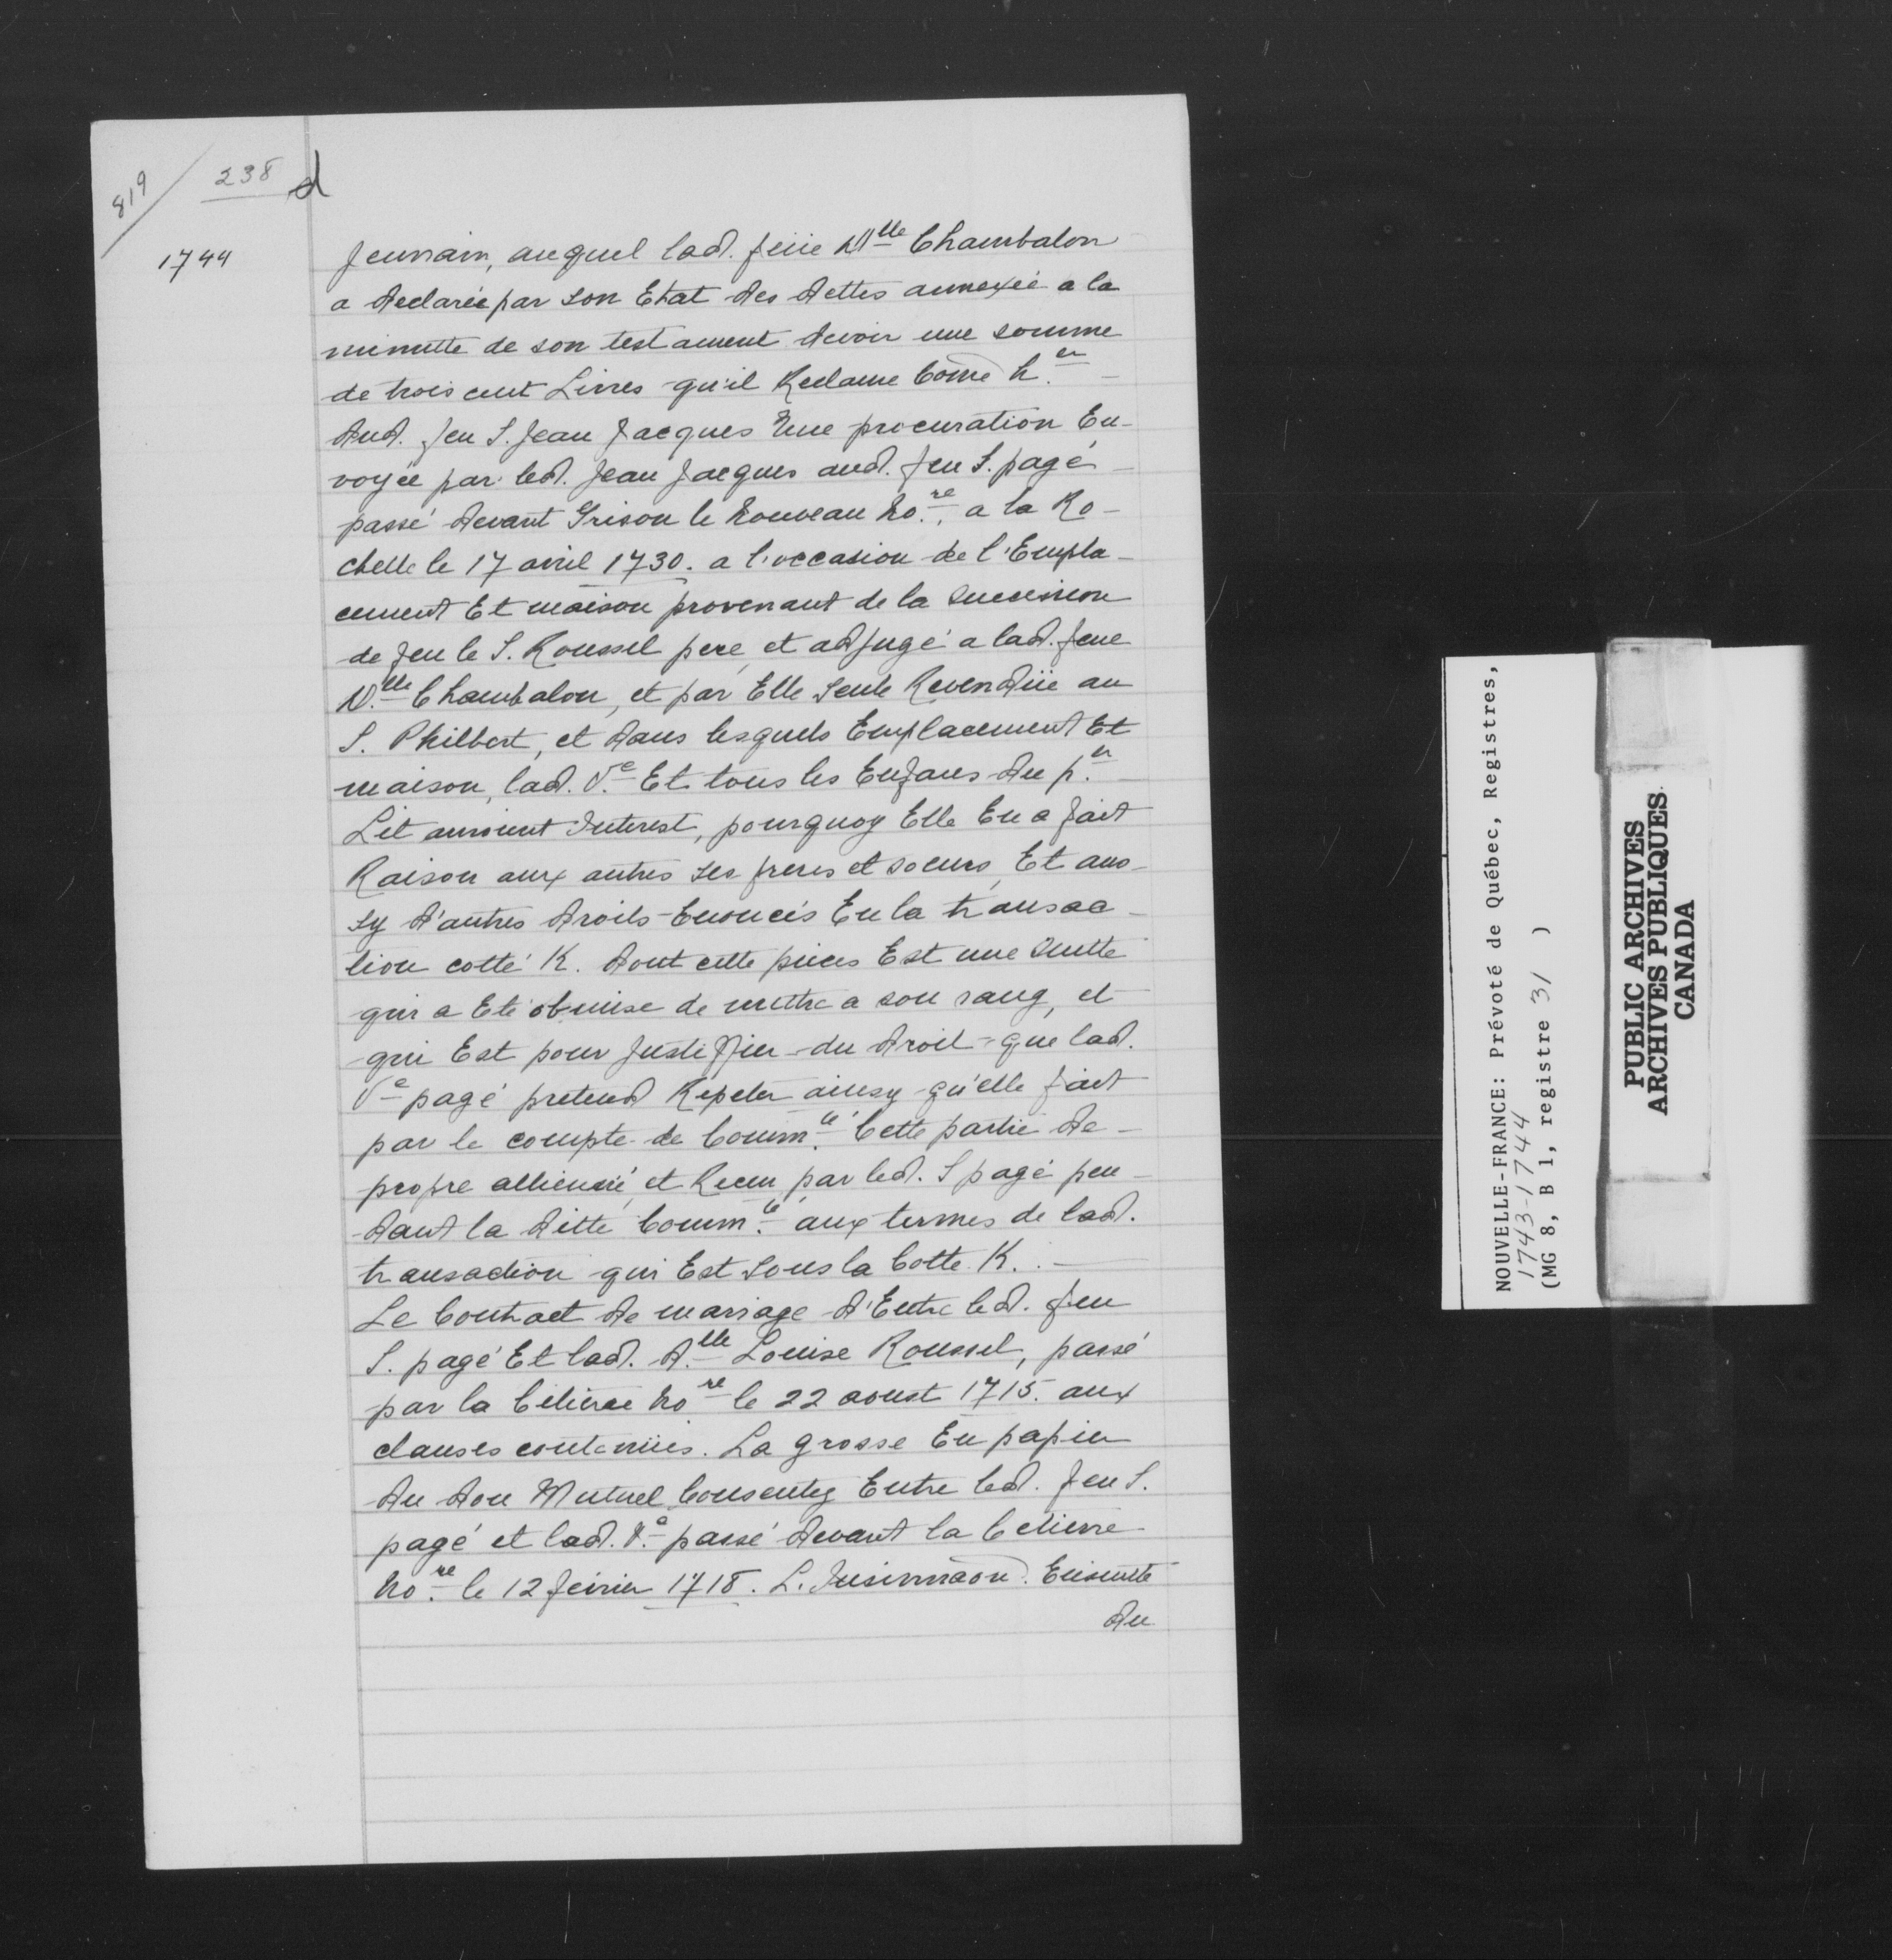 819 / 238 d
1744
Jeunrain, auquel lad. feüe Dlle Chambalon
a declarée par son Etat des dettes annexée a la
minutte de son testament devoir une somme
de trois cent Livres qu'il Reclame Come h.er
dud. feu S. Jean Jacques Une procuration En-
voyée par led. Jean Jacques aud. feu S. pagé
passé devant Grison le nouveau no.re, a la Ro-
chelle le 17 avril 1730. a l'occasion de l'Empla-
cement Et maison provenant de la succession
de feu le S. Roussel pere, et adjugé a lad. feue
D.lle Chambalon, et par Elle seule Revendüe au
S. Philbert, et dans lesquels Emplacement Et
maison, lad. V.e Et tous les Enfans du p.er
Lit auroient Interest, pourquoy Elle En a fait
Raison aux autres ses freres et soeurs, Et aus-
sy d'autres droits Enoncés En la transac-
tion cotté K. dont cette pieces Est une suitte
qui a Eté obmise de mettre a son rang, et
qui Est pour Justiffier du droit que lad.
Ve pagé pretend Répeter ainsy qu'elle fait
par le compte de Comm.té Cette partie de
propre alliennié, et Receu par led. S pagé pen-
dant la ditte Comm.té aux termes de lad.
transaction qui Est sous la Cotte K. . -
Le Contract de mariage d'Entre led. feu
S. pagé Et lad. d.lle Louise Roussel, passé
par la Cetierre nore le 22 aoust 1715. aux
clauses contenües. La grosse En papier
du don Mutuel Consentey Entre led. feu S.
pagé et lad. V.e passé devant la Cetierre
no.re le 12 fevrier 1718. L. Insinuãon. Ensuitte
du
NOUVELLE-FRANCE: Prévoté de Québec, Registres,
1743-1744
(MG 8, B 1, registre 31 )
PUBLIC ARCHIVES
ARCHIVES PUBLIQUES
CANADA